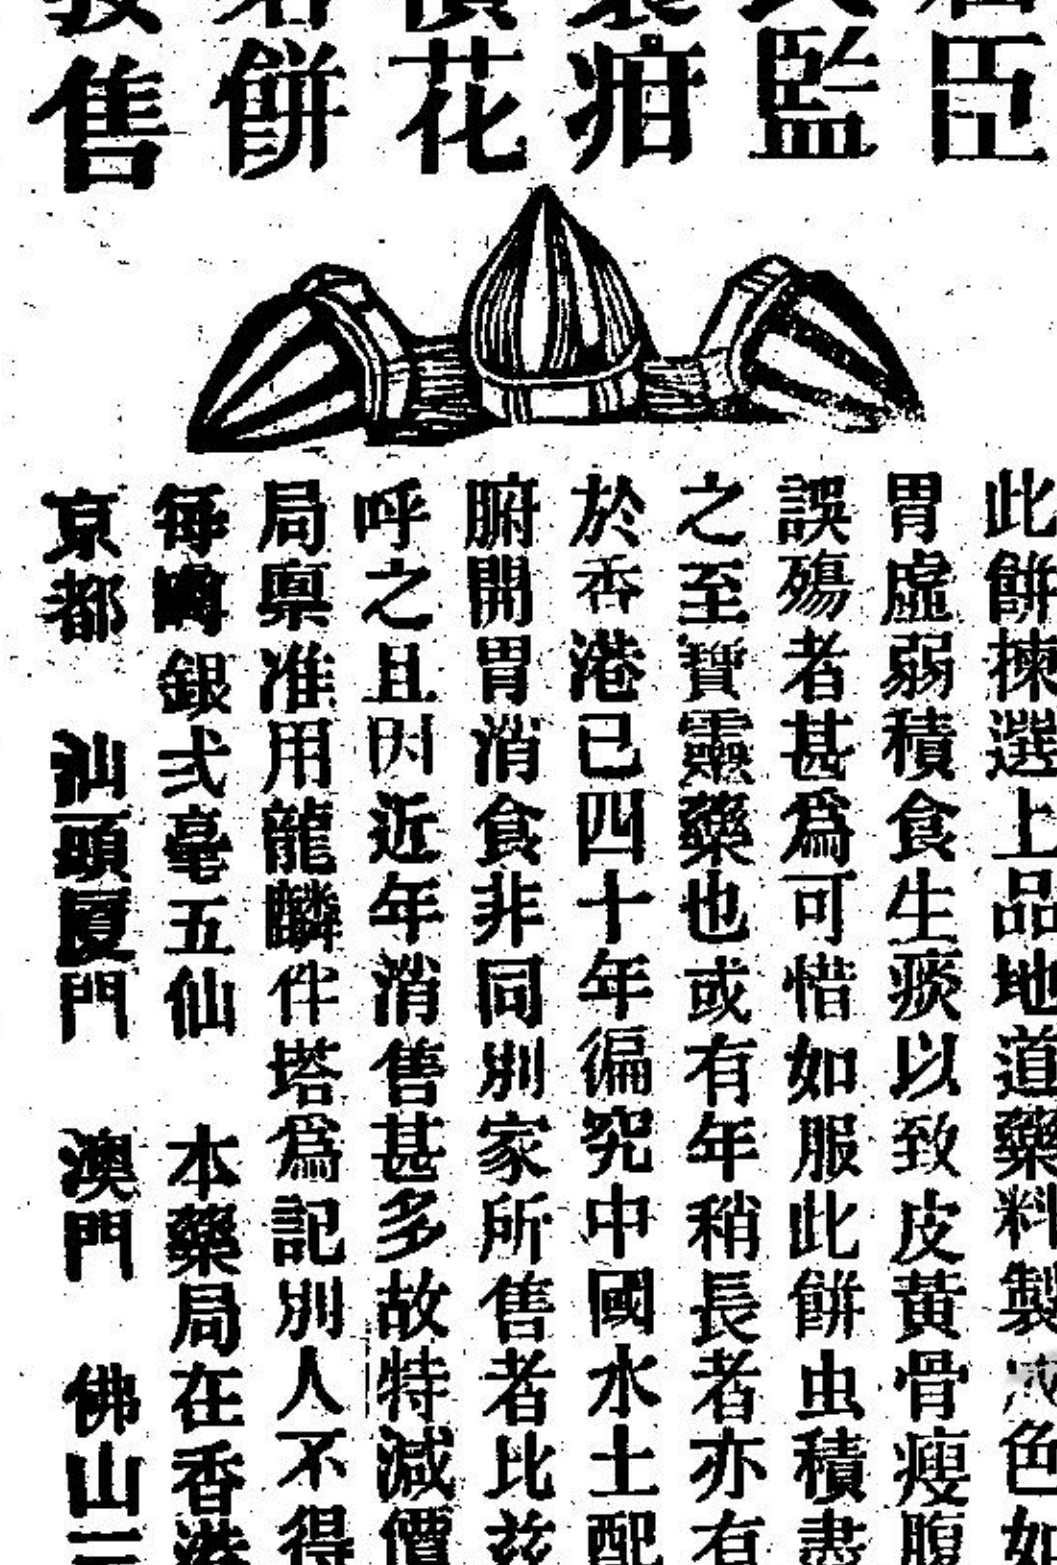 臣
監
疳
花
餅
售
此餅揀選上品地道藥料製成色如
胃虛弱積食生痰以致皮黃骨瘦腹
誤殤者甚爲可惜如服此餅虫積盡
之至寶靈藥也或有年稍長者亦有
於香港已四十年徧究中國水土配
腑開胃消食非同別家所售者比茲
呼之且因近年消售甚多故特減價
局稟准用龍麟伴塔爲記別人不得
每 銀弍毫五仙 本藥局在香港
京都 汕頭厦門 澳門 佛山